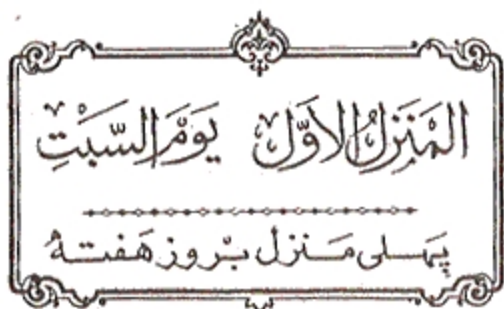 المَنزِلُ الاَوَّل يَومَ السَّبَتِ
پہلی منزل بروز ہفتہ